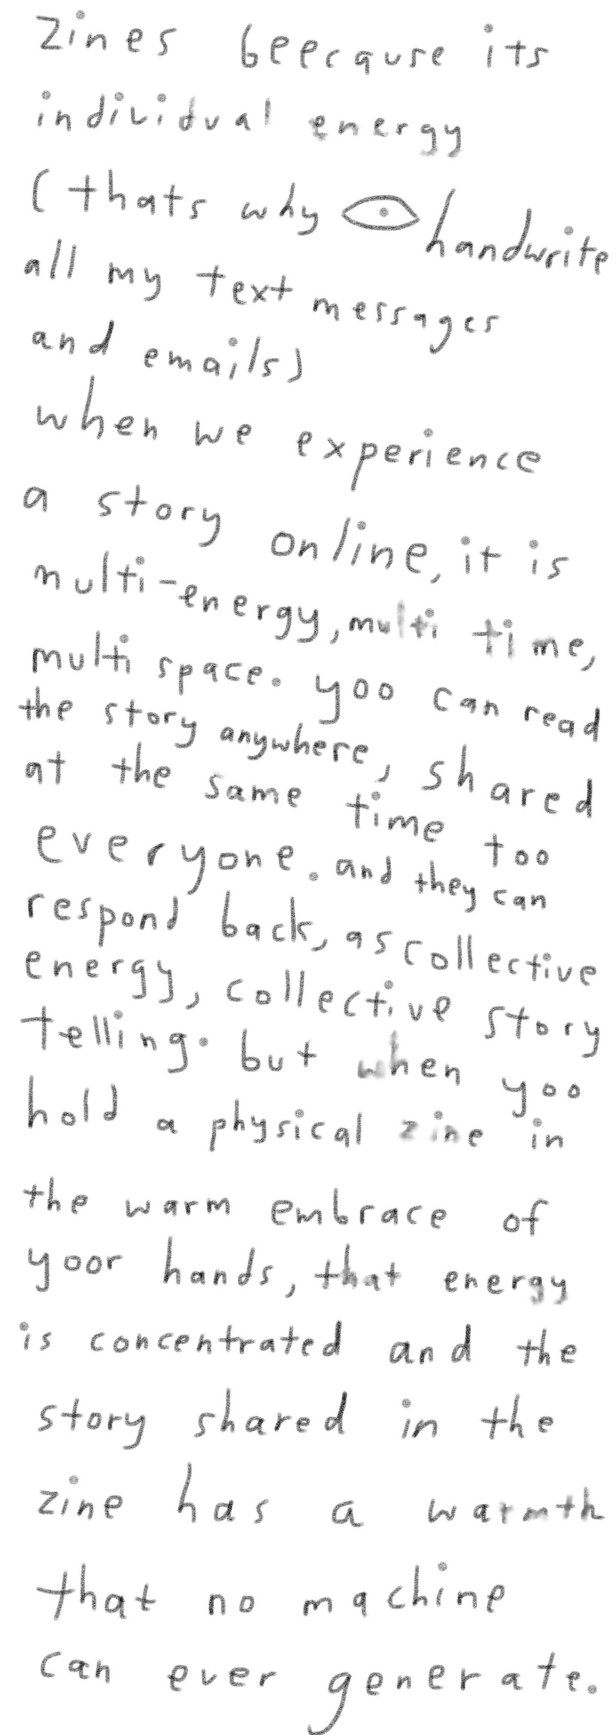 zines beecause its
individual energy
(thats why 👁 handwrite
all my text messages
and emails)
when we experience
a story online, it is
multi-energy, multi time,
multi space. yoo can read
the story anywhere, shared
at the same time too
everyone. and they can
respond back, as collective
energy, collective story
telling. but when yoo
hold a physical zine in
the warm embrace of
yoor hands, that energy
is concentrated and the
story shared in the
zine has a warmth
that no machine
can ever generate.